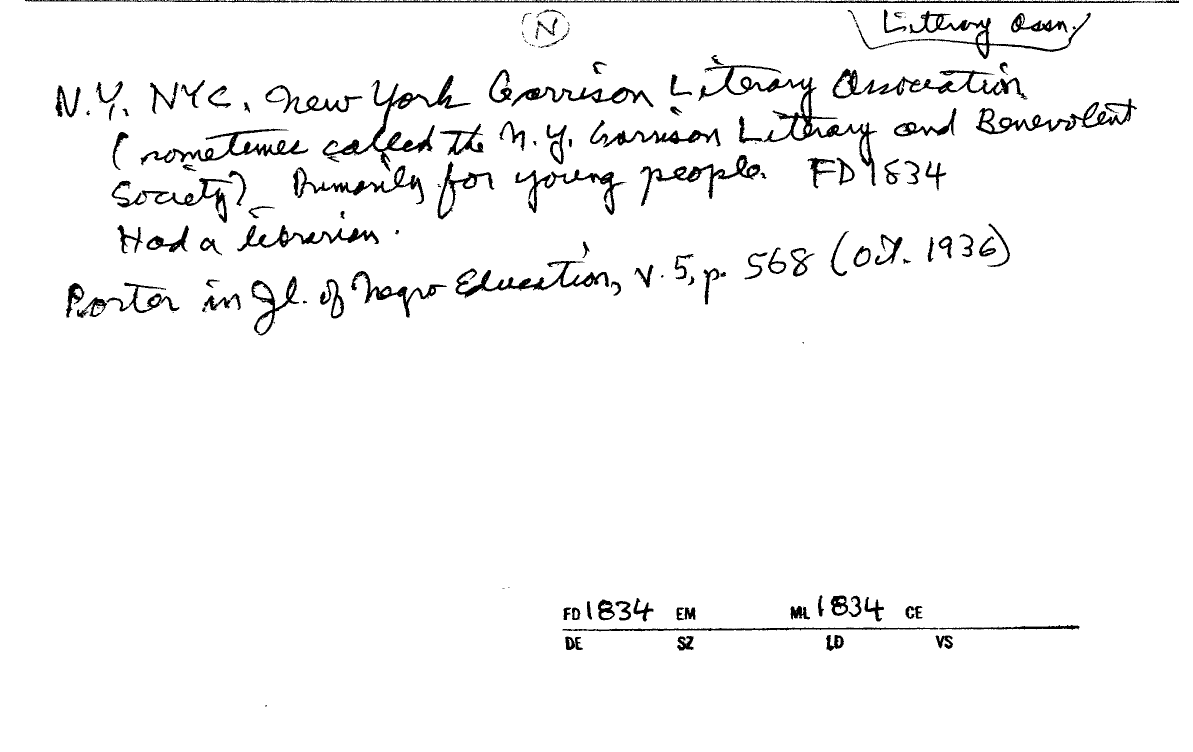 N
Literary Assn.
N.Y. NYC. New York Garrison Literary Association
(sometimes called the N.Y. Garrison Literary and Benevolent
Society). Primarily for young people. FD 1834
Had a librarian.
Porter in Jl. of Negro Education, v. 5, p. 568 (Oct. 1936)
FD 1834 EM ML 1834 CE
DE SZ LD VS